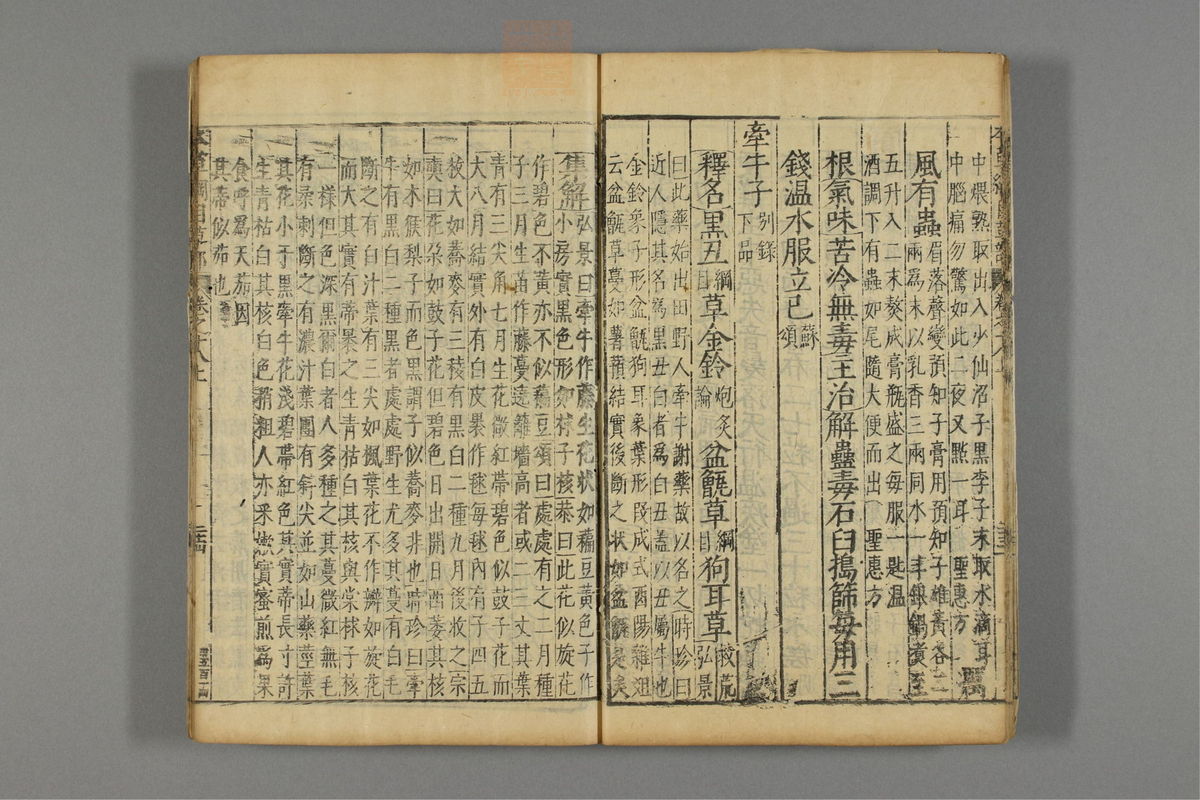 中煨熟取出入少仙沼子黑李子末取水滴耳
中腦痛勿驚如此二夜又㸃一耳 聖惠方
風有蟲眉落聲變預知子膏用預知子雄黃各二
兩爲末以乳香三兩同水一斗銀鍋煑至
五升入二末熬成膏瓶盛之每服一匙溫
酒調下有蟲如尾隨大便而出 聖惠方
根氣味苦冷無毒主治解蠱毒石臼搗篩每用三
錢温水服立已蘇頌
牽牛子別錄下品
釋名黑丑綱目草金鈴炮炙論盆甑草綱目狗耳草救荒弘景
曰此藥始出田野人牽牛謝藥故以名之時珍曰
近人隱其名爲黑丑白者爲白丑蓋以丑屬牛也
金鈴象子形盆甑狗耳象葉形段成式酉陽雜俎
云盆甑草蔓如薯蕷結實後斷之狀如盆甑是矣
集解弘景曰牽牛作藤生花狀如藊豆黃色子作
小房實黑色形如梂子核恭曰此花似旋花
作碧色不黃亦不似藊豆頌曰處處有之二月種
子三月生苗作藤蔓遶籬墻高者或二三丈其葉
青有三尖角七月生花微紅帶碧色似鼓子花而
大八月結實外有白皮裹作毬每毬內有子四五
枚大如蕎麥有三稜有黑白二種九月後收之宗
奭曰花朶如鼓子花但碧色日出開日西萎其核
如木猴梨子而色黑謂子似蕎麥非也時珍曰牽
牛有黑白二種黑者處處野生尤多其蔓有白毛
斷之有白汁葉有三尖如楓葉花不作瓣如旋花
而大其實有蒂裹之生青枯白其核與棠梂子核
一樣但色深黑爾白者人多種之其蔓微紅無毛
有柔刺斷之有濃汁葉團有斜尖並如山藥莖葉
其花小于黑牽牛花淺碧帶紅色其實蒂長寸許
生青枯白其核白色稍粗人亦采嫩實蜜煎爲果
食呼爲天茄因
其蒂似茄也